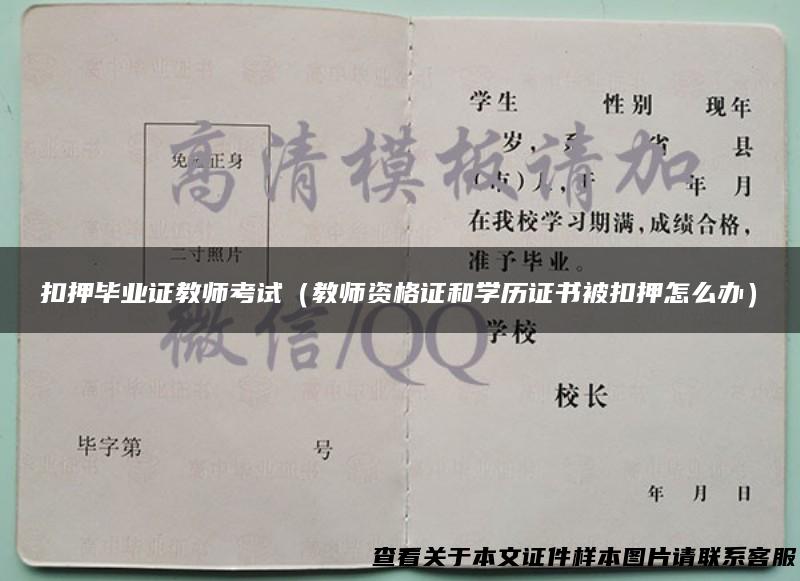 高清模板请加
微信/QQ
免 正身
二寸照片
毕字第 号
学生 性别 现年
岁, 系 省 县
(市)人,于 年 月
在我校学习期满,成绩合格,
准予毕业。
扣押毕业证教师考试（教师资格证和学历证书被扣押怎么办）
学校
校长
年 月 日
查看关于本文证件样本图片请联系客服